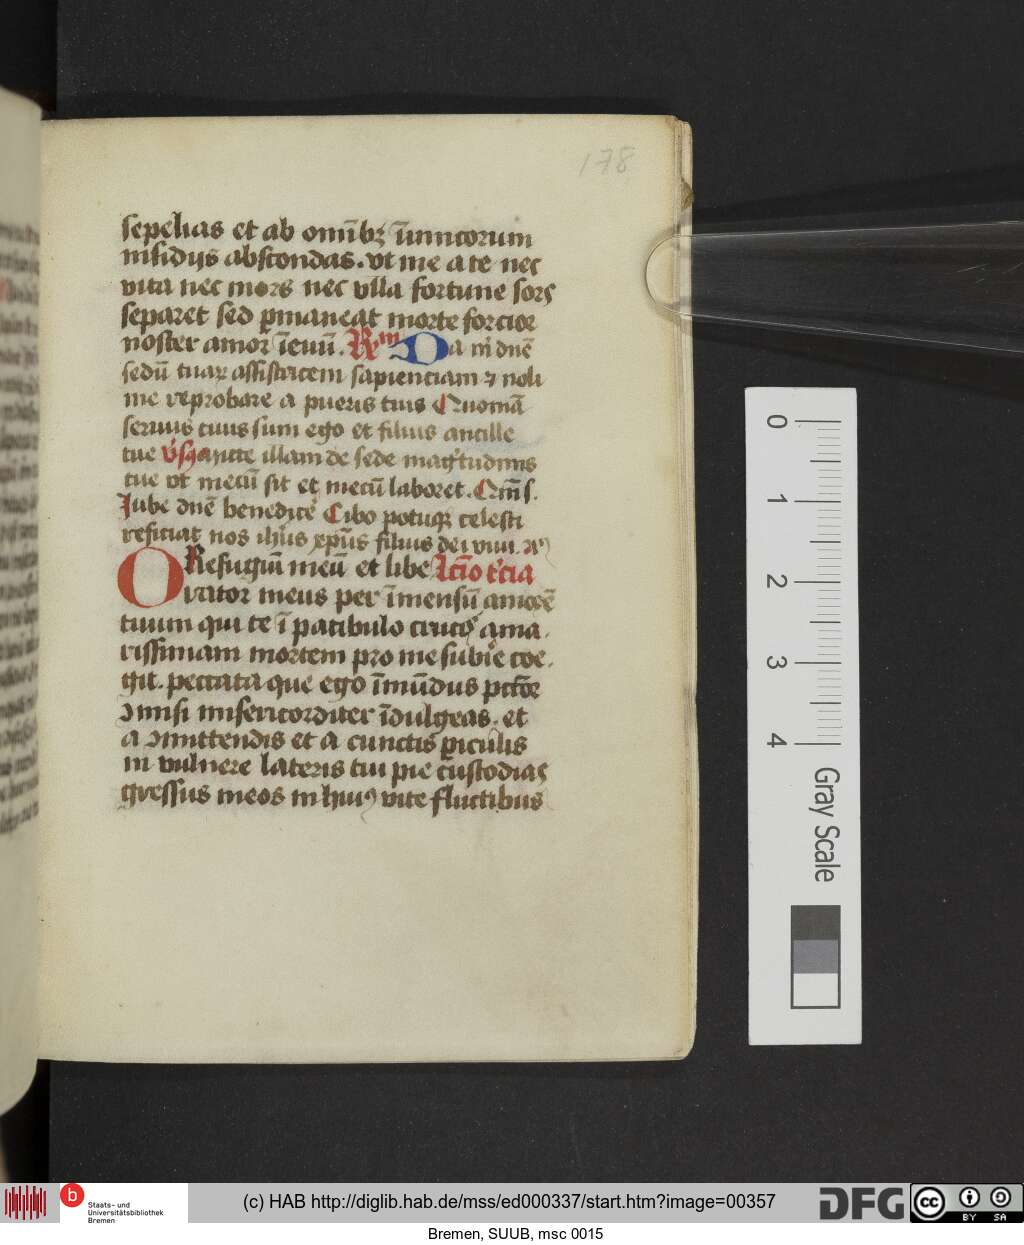 178
sepelias et ab om̄ibꝫ īimicorum
insidijs abscondas. vt me a te nec
vita nec mors nec vlla fortune sors
separet sed ꝑmaneat morte forcior
noster amor īeuū. Rm Da m̄ dnē
sedū tuaꝝ assistricem sapienciam ⁊ noli
me reprobare a pueris tuis Quoniā
seruus tuus sum ego et filius ancille
tue vs̄ Mitte illam de sede magͥtudinis
tue vt mecū sit et mecū laboret. Qm̄ s.
Iube dnē benedicē Cibo potuqꝫ celesti
reficiat nos ihūs xp̄us filius dei viui.
O Refugiū meū et libe lc̄io tͨcia
rator meus per īmensū amorē
tuum qui te ī patibulo crucꝭ ama
rissimam mortem pro me subiͬe coe
git. peccata que ego īmūdus pctōr
ꝯmisi misericorditer īdulgeas. et
a ꝯmittendis et a cunctis ꝑiculis
in vulnere lateris tui pie custodias
gressus meos in huiꝰ vite fluctibus
0
1
2
3
4
Gray Scale
b
Staats- und
Universitätsbibliothek
Bremen
(c) HAB http://diglib.hab.de/mss/ed000337/start.htm?image=00357
DFG
cc
BY SA
Bremen, SUUB, msc 0015